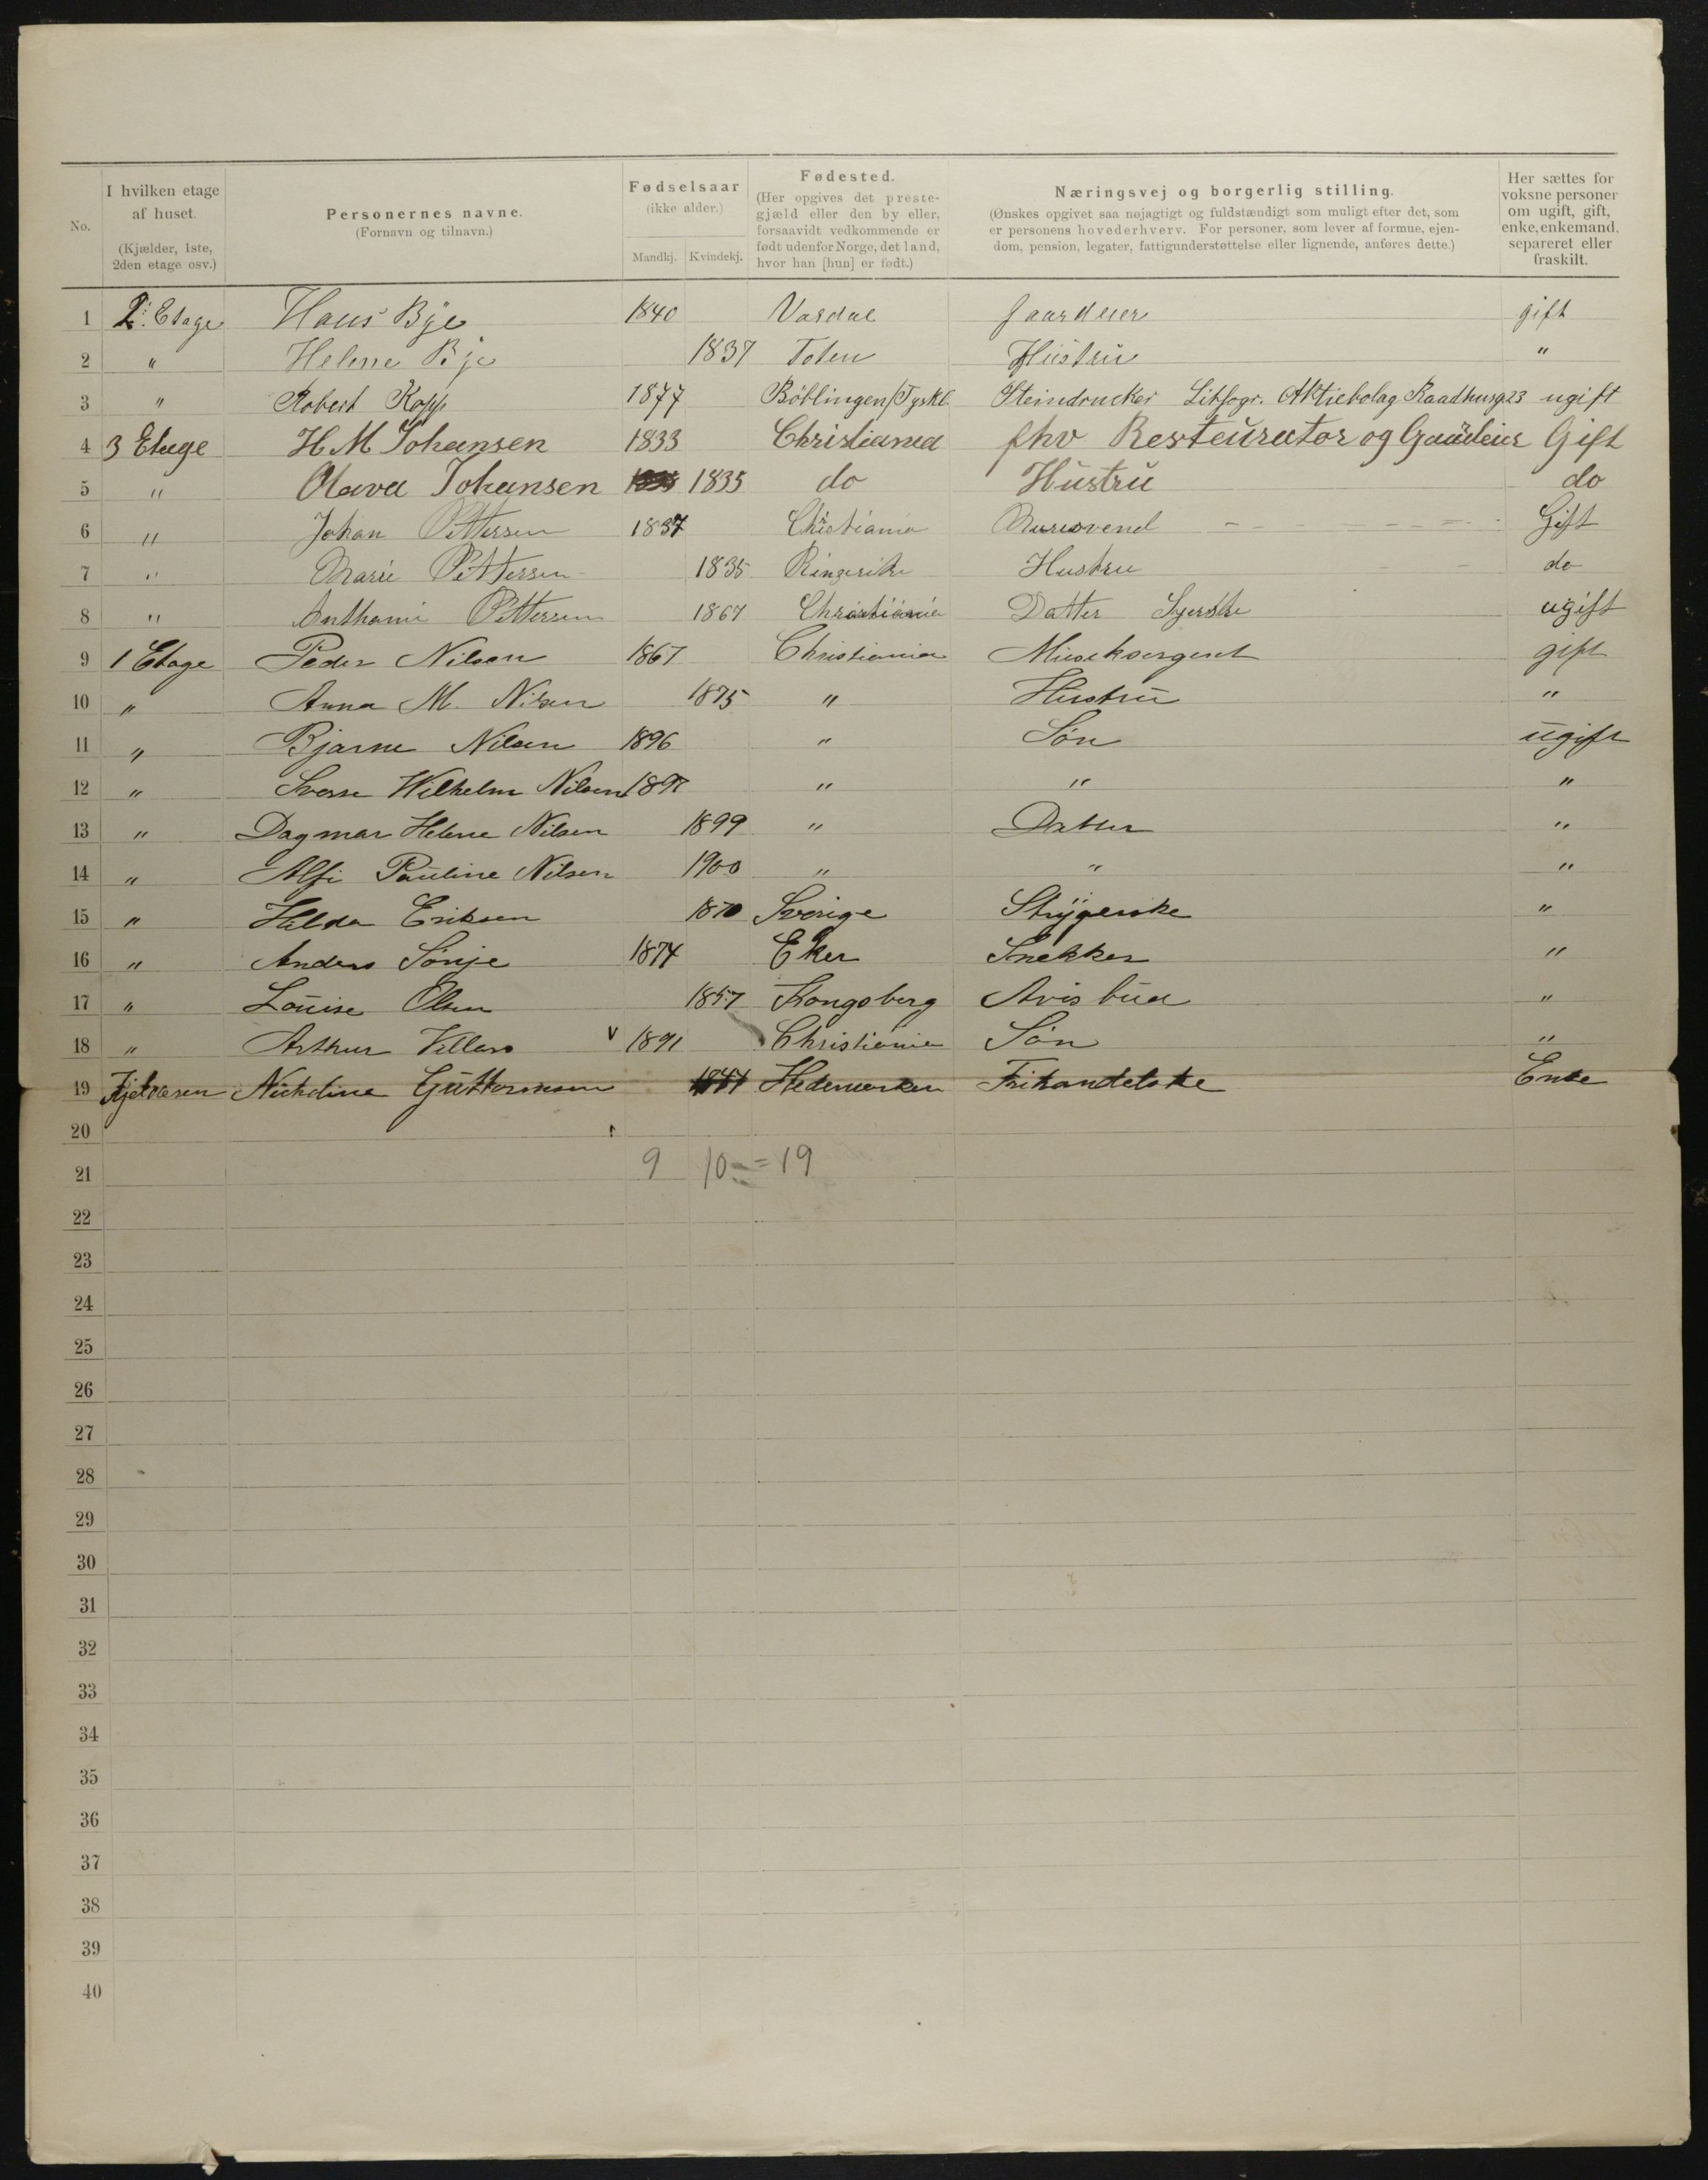 No.
I hvilken etage af huset. (Kjælder, 1ste, 2den etage osv.)
Personernes navne. (Fornavn og tilnavn.)
Fødselsaar (ikke alder.) Mandkj. Kvindekj.
Fødested. (Her opgives det prestegjæld eller den by eller, forsaavidt vedkommende er født udenfor Norge, det land, hvor han [hun] er født.)
Næringsvej og borgerlig stilling. (Ønskes opgivet saa nøjagtigt og fuldstændigt som muligt efter det, som er personens hovederhverv. For personer, som lever af formue, ejendom, pension, legater, fattigunderstøttelse eller lignende, anføres dette.)
Her sættes for voksne personer om ugift, gift, enke, enkemand, separeret eller fraskilt.
1 2. Etage Hans Bye 1840 Vardal gift
2 " Helene Bye 1837 Toten Hustru "
3 " Robert Kopp 1877 Böblingen/Tyskl. Steindrucker Lithogr. Aktiebolag Raadhusg 23 ugift
4 3 Etage H. M Johansen 1833 Christiania fhv Restauratør og Gaardeier Gift
5 " Olava Johansen 1835 do Hustru do
6 " Johan Pettersen 1837 Christiania Murersvend Gift
7 " Marie Pettersen 1835 Ringerike Hustru do
8 " Anthonie Pettersen 1867 Christiania Datter Syerske ugift
9 1 Etage Peder Nilsen 1867 Christiania Musiksergent gift
10 " Anna M. Nilsen 1875 " Hustru "
11 " Bjarne Nilsen 1896 " Søn ugift
12 " Sverre Wilhelm Nilsen 1897 " " "
13 " Dagmar Helene Nilsen 1899 " Datter "
14 " Alfi Pauline Nilsen 1900 " " "
15 " Hilda Eriksen 1870 Sverige Strygerske "
16 " Anders Sønje 1874 Eker Snekker "
17 " Louise Olsen 1857 Kongsberg Avis bud "
18 " Arthur v 1891 Christiania Søn "
19 Kjelderen Nicholine Guttormsen 1844 Hedemarken Frihandelske Enke
20
21 9 10 = 19
22
23
24
25
26
27
28
29
30
31
32
33
34
35
36
37
38
39
40